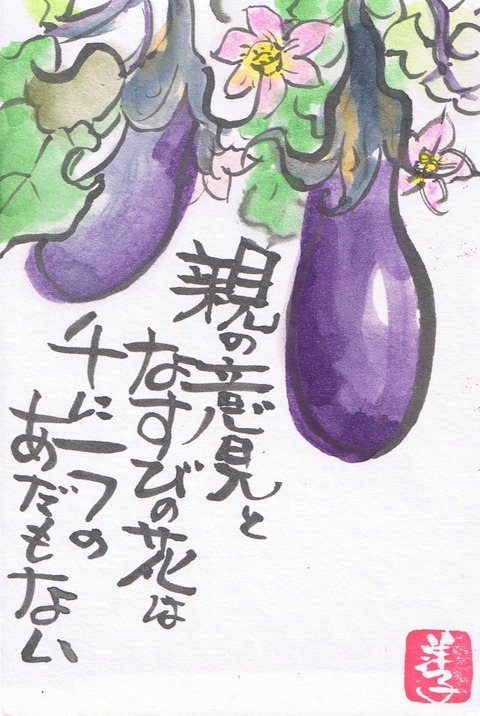 親の意見と
なすびの花は
千に一つの
あだもない